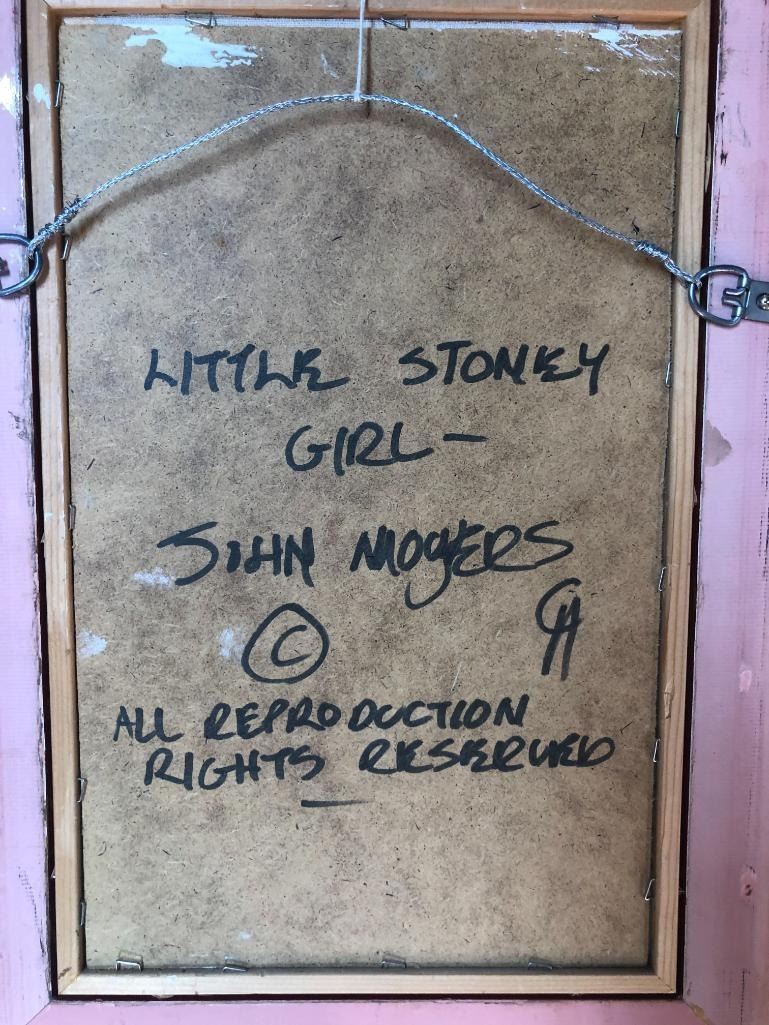 LITTLE STONEY
GIRL —
JOHN MOYERS
©
ALL REPRODUCTION
RIGHTS RESERVED